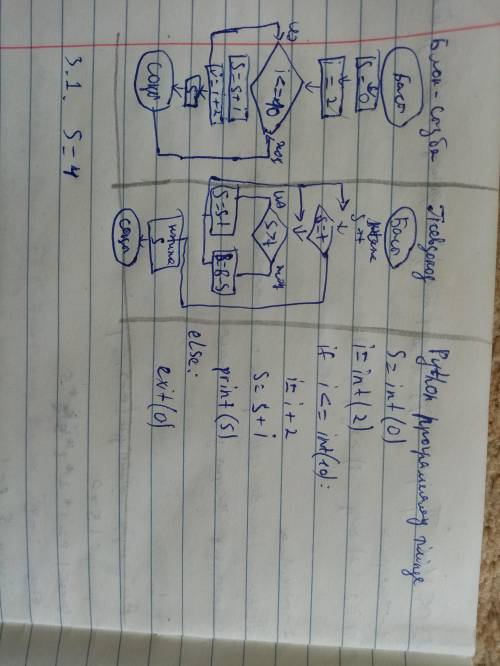 Блок-схема
Басы
S=0
i=2
i<=10
иә
жоқ
S=S+i
i=i+2
S
соңы
Псевдокод
Басы
S>t
иә
жоқ
соңы
Python программалау тілінде
S=int(0)
i=int(2)
if i<=int(10):
i=i+2
S=S+i
print(S)
else:
exit(0)
3.1. S=4